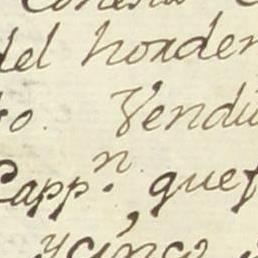 del horden
to. Vendi
Capp.ⁿ que
ycinco